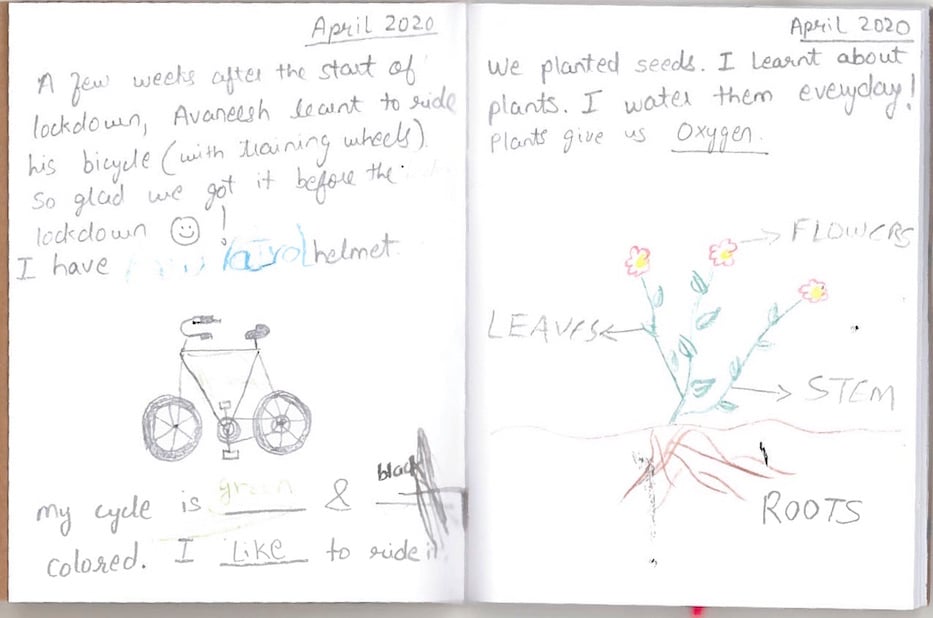 April 2020
A few weeks after the start of
lockdown, Avaneesh learnt to ride
his bicycle (with training wheels).
So glad we got it before the
lockdown !
I have helmet.
my cycle is green & black
colored. I Like to ride it
April 2020
We planted seeds. I learnt about
plants. I water them everyday!
Plants give us Oxygen.
FLOWERS
LEAVES
STEM
ROOTS